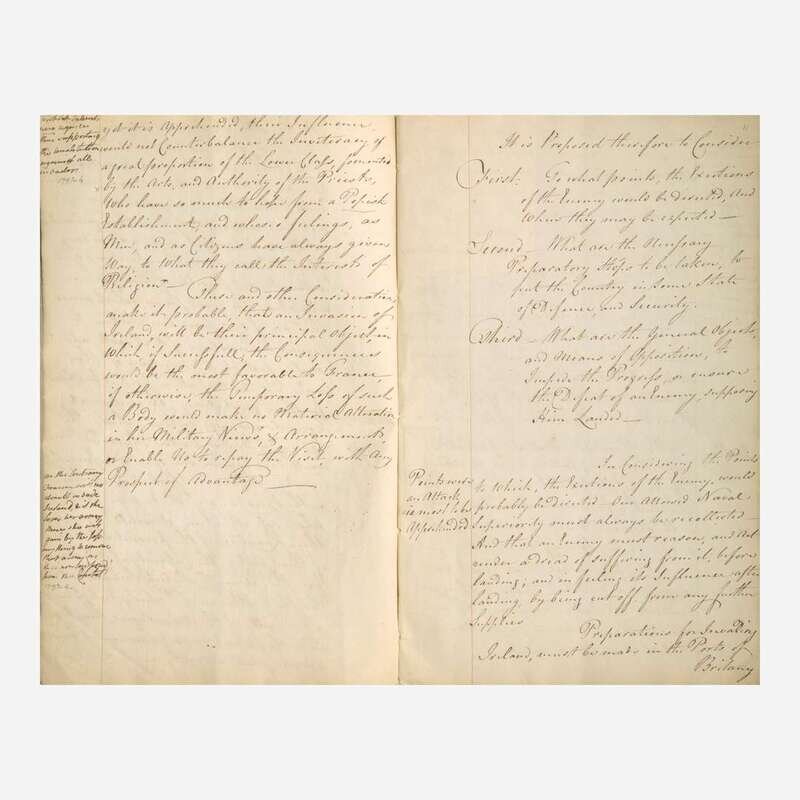 yet it is Apprehended, their Influence
would not Counterbalance the Inveteracy of
a great proportion of the Lower Class, fomented
by the Arts, and Authority of the Priests,
Who have so much to hope from a Popish
Establishment, and whose feelings, as
Men, and as Citizens have always given
Way, to What they call the Interests of
Religion. — These and other Considerations
make it probable, that an Invasion of
Ireland, will be their principal Object, in
Which, if Successfull, the Consequences
would be the most favorable to France,
if otherwise, the Temporary Loss of such
a Body would make no Material Alteration
in her Military Views, & Arrangements,
or Enable Us to repay the Visit with Any
Prospect of Advantage —
their supporting
the constitution
against all
invaders
on the Contrary
should invade
Ireland, & is the
11
It is Proposed therefore to Consider
First. To what points, the Exertions
of the Enemy would be directed, and
Where they may be expected —
Second — What are the Necessary
Preparatory Steps to be taken, to
put the Country in Some State
of Defence, and Security.
Third — What are the General Objects,
and Means of Opposition, To
Impede the Progress, or ensure
the Defeat of an Enemy, supposing
Him Landed —
Points where
an Attack
is most to be
Apprehended
In Considering the Points
to Which, the Exertions of the Enemy, would
probably be directed — Our Allowed Naval
Superiority must always be recollected —
And that an Enemy must reason, and Act
under a dread of suffering from it, before
landing; and in feeling its Influence after
landing, by being cut off from any further
Supplies
Preparations for Invading
Ireland, must be made in the Ports of
Britany